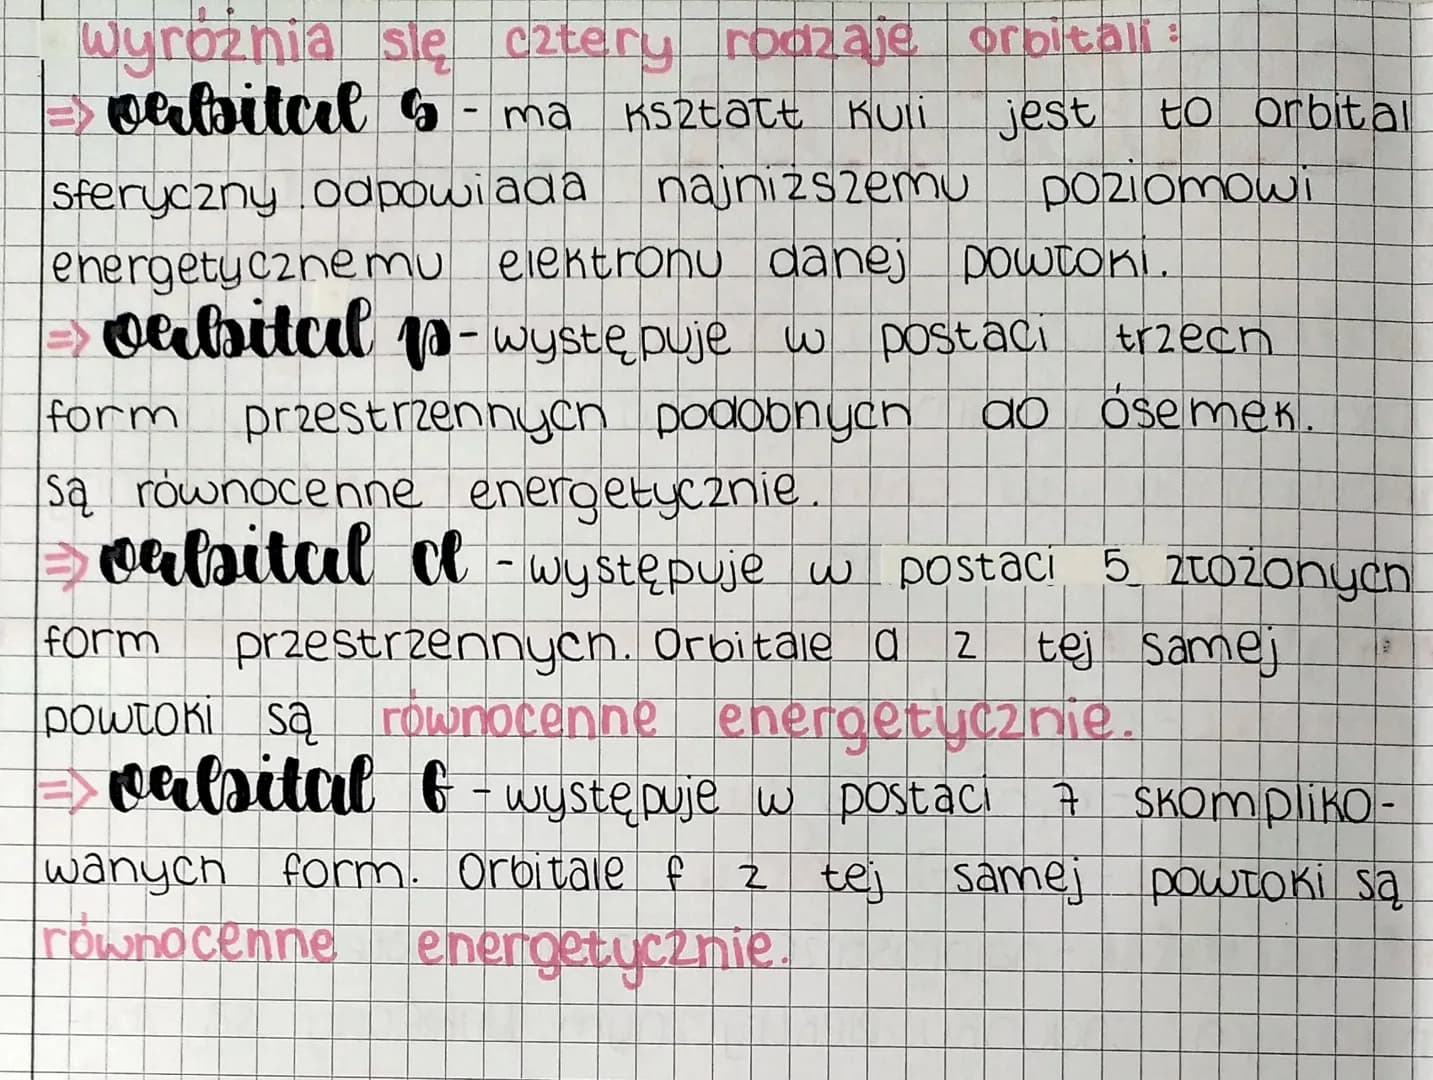 wyróżnia się cztery rodzaje orbitali:
=> orbital s - ma kształt kuli jest to orbital
sferyczny. odpowiada najniższemu poziomowi
energetycznemu elektronu danej powłoki.
=> orbital p - występuje w postaci trzech
form przestrzennych podobnych do ósemek.
są równocenne energetycznie.
=> orbital d - występuje w postaci 5 złożonych
form przestrzennych. Orbitale d z tej samej
powłoki są równocenne energetycznie.
=> orbital f - występuje w postaci 7 skompliko-
wanych form. Orbitale f z tej samej powłoki są
równocenne energetycznie.